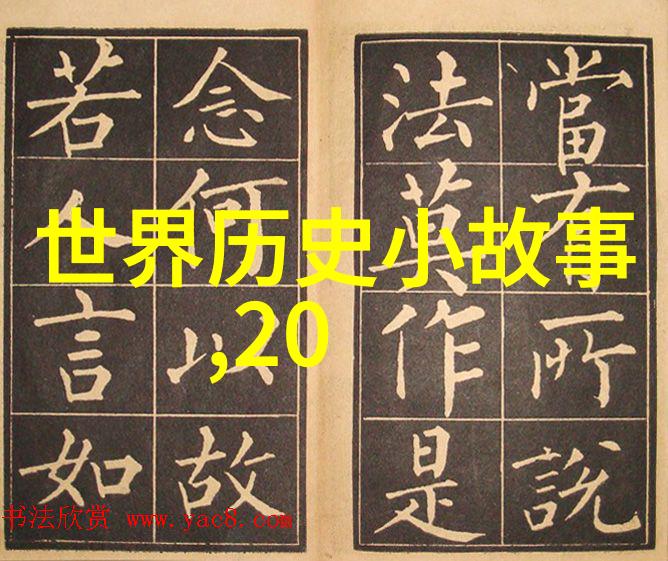 當有所說
法莫作是
念何以故
若人言如
世界历史小故事
,20
书法欣赏 www.yac8.com